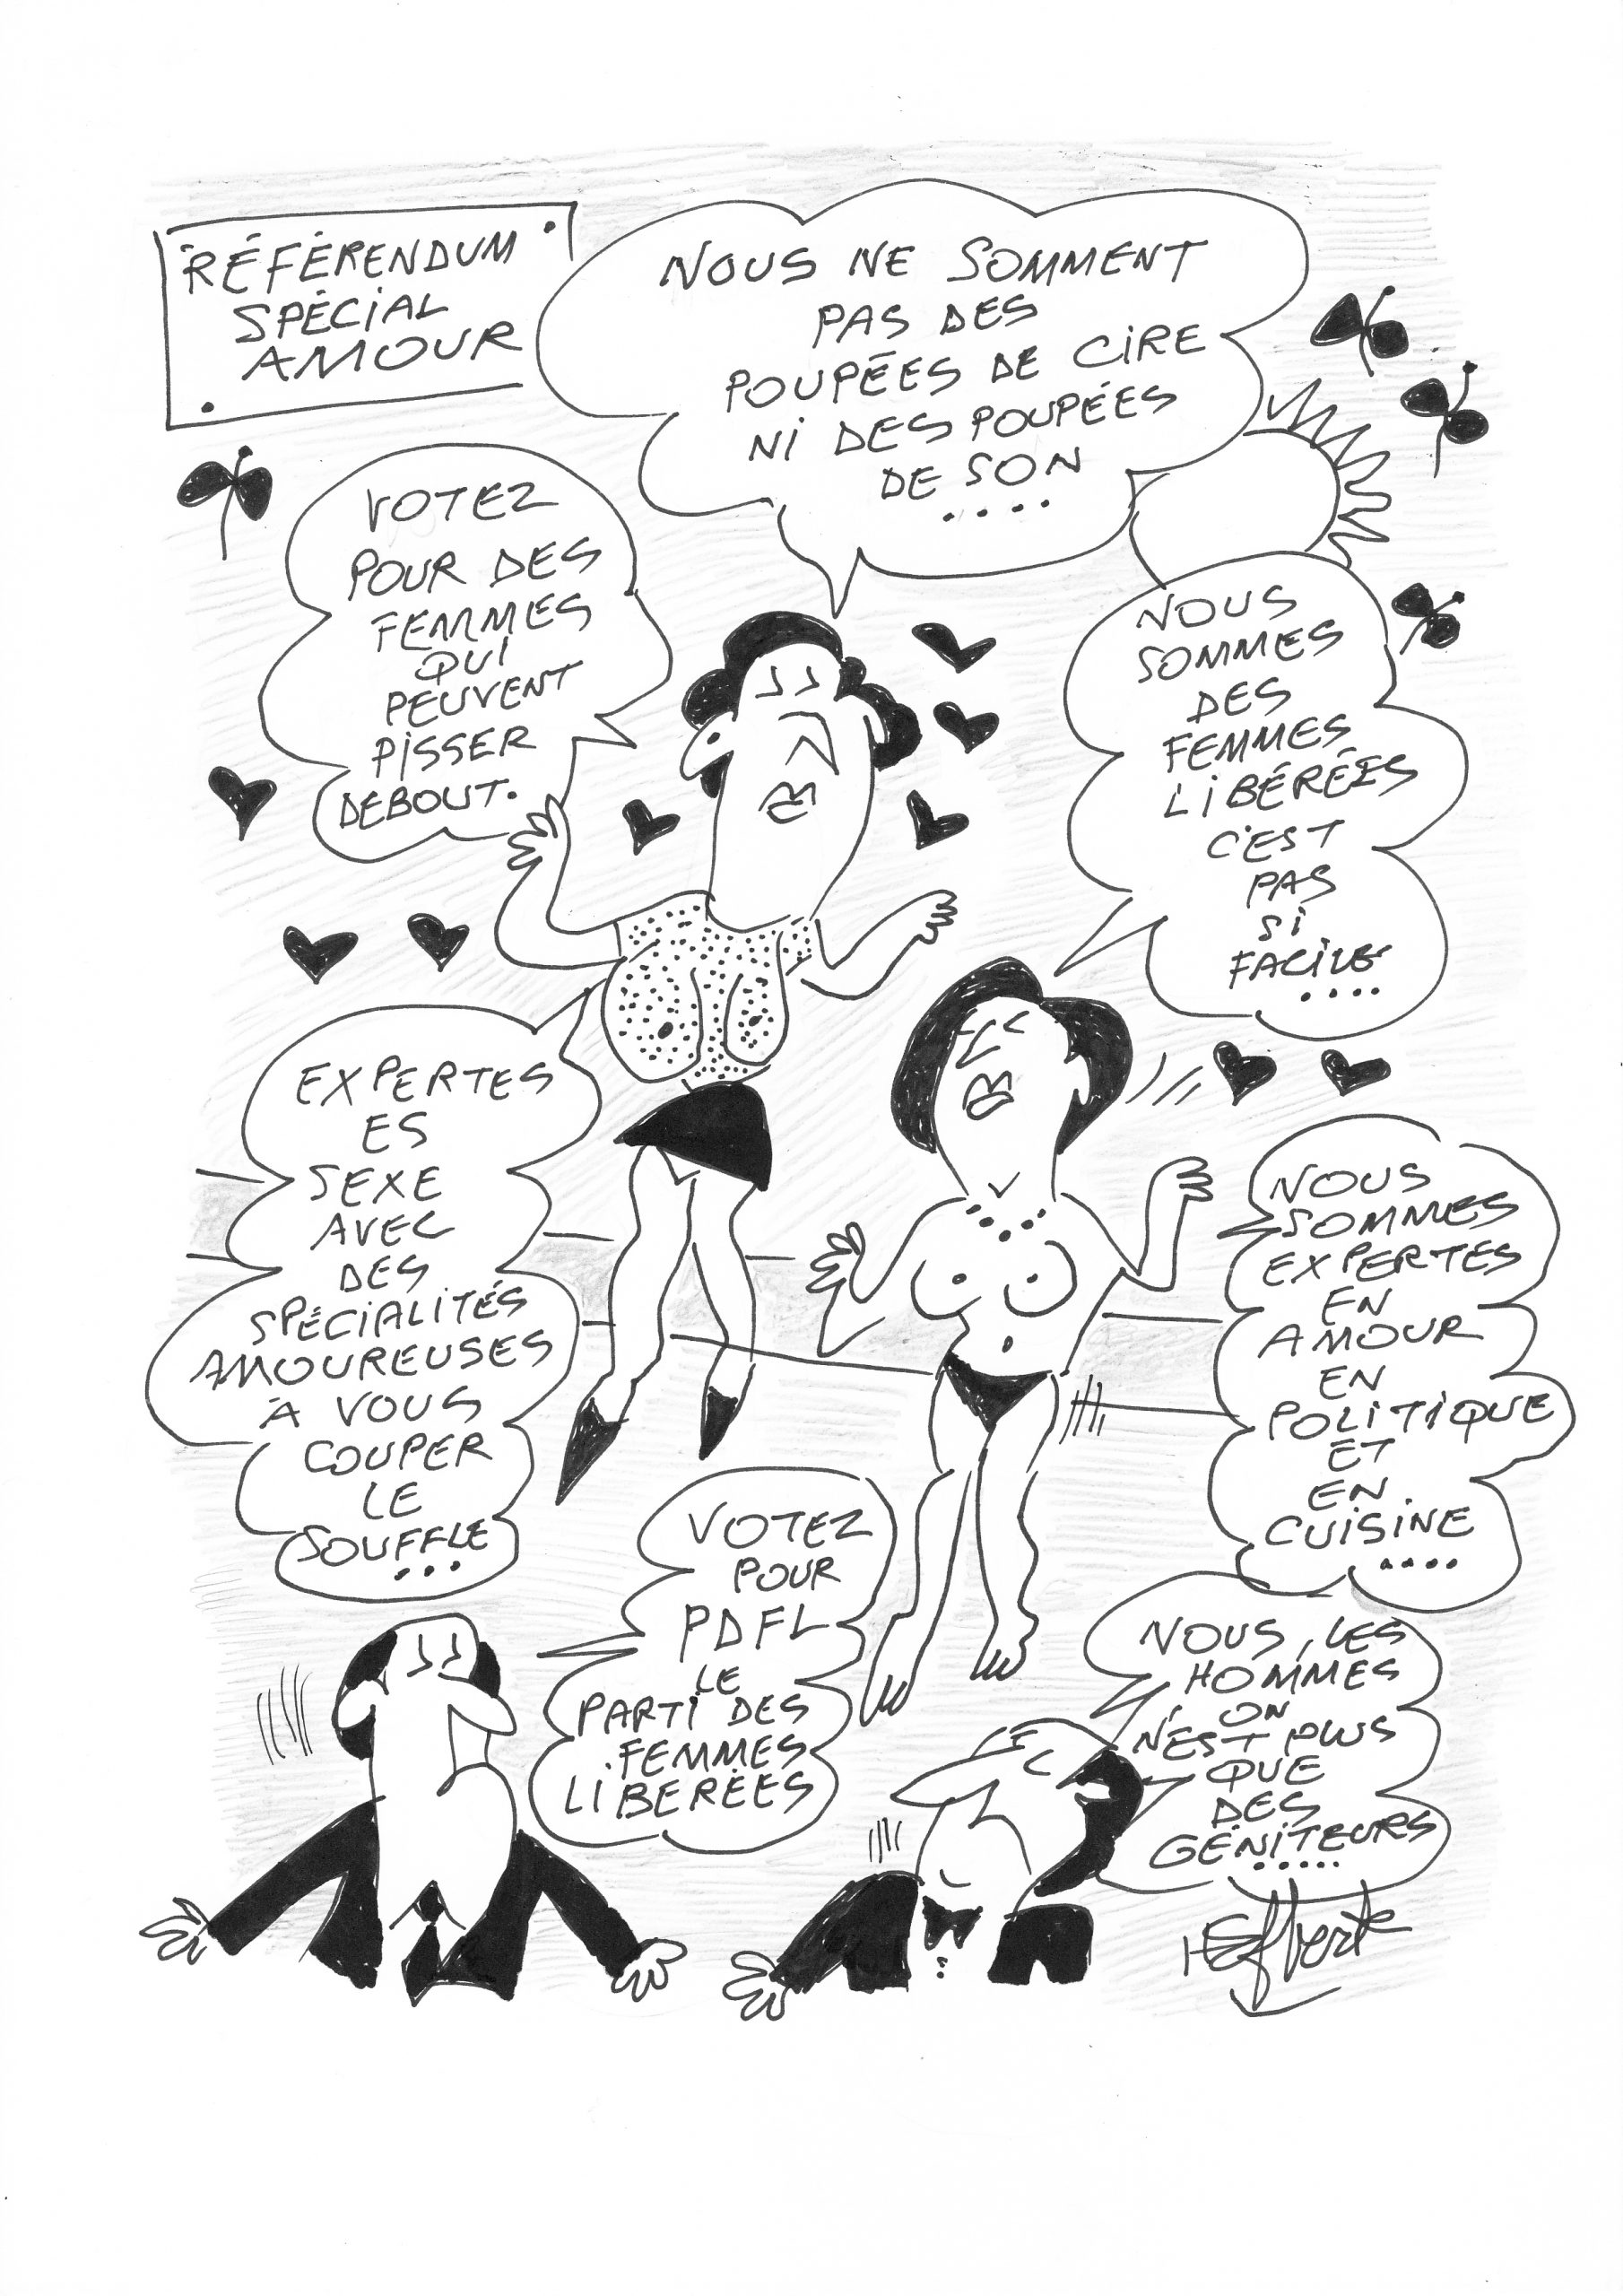 RÉFÉRENDUM
SPÉCIAL
AMOUR
NOUS NE SOMMENT
PAS DES
POUPÉES DE CIRE
NI DES POUPÉES
DE SON
....
VOTEZ
POUR DES
FEMMES
QUI
PEUVENT
PISSER
DEBOUT.
NOUS
SOMMES
DES
FEMMES
LIBÉRÉES
C'EST
PAS
SI
FACILE
....
EXPERTES
ES
SEXE
AVEC
DES
SPÉCIALITÉS
AMOUREUSES
À VOUS
COUPER
LE
SOUFFLE
...
NOUS
SOMMES
EXPERTES
EN
AMOUR
EN
POLITIQUE
ET
EN
CUISINE
....
VOTEZ
POUR
PDFL
LE
PARTI DES
FEMMES
LIBERÉES
NOUS, LES
HOMMES
ON
N'EST PLUS
QUE
DES
GÉNITEURS
.....